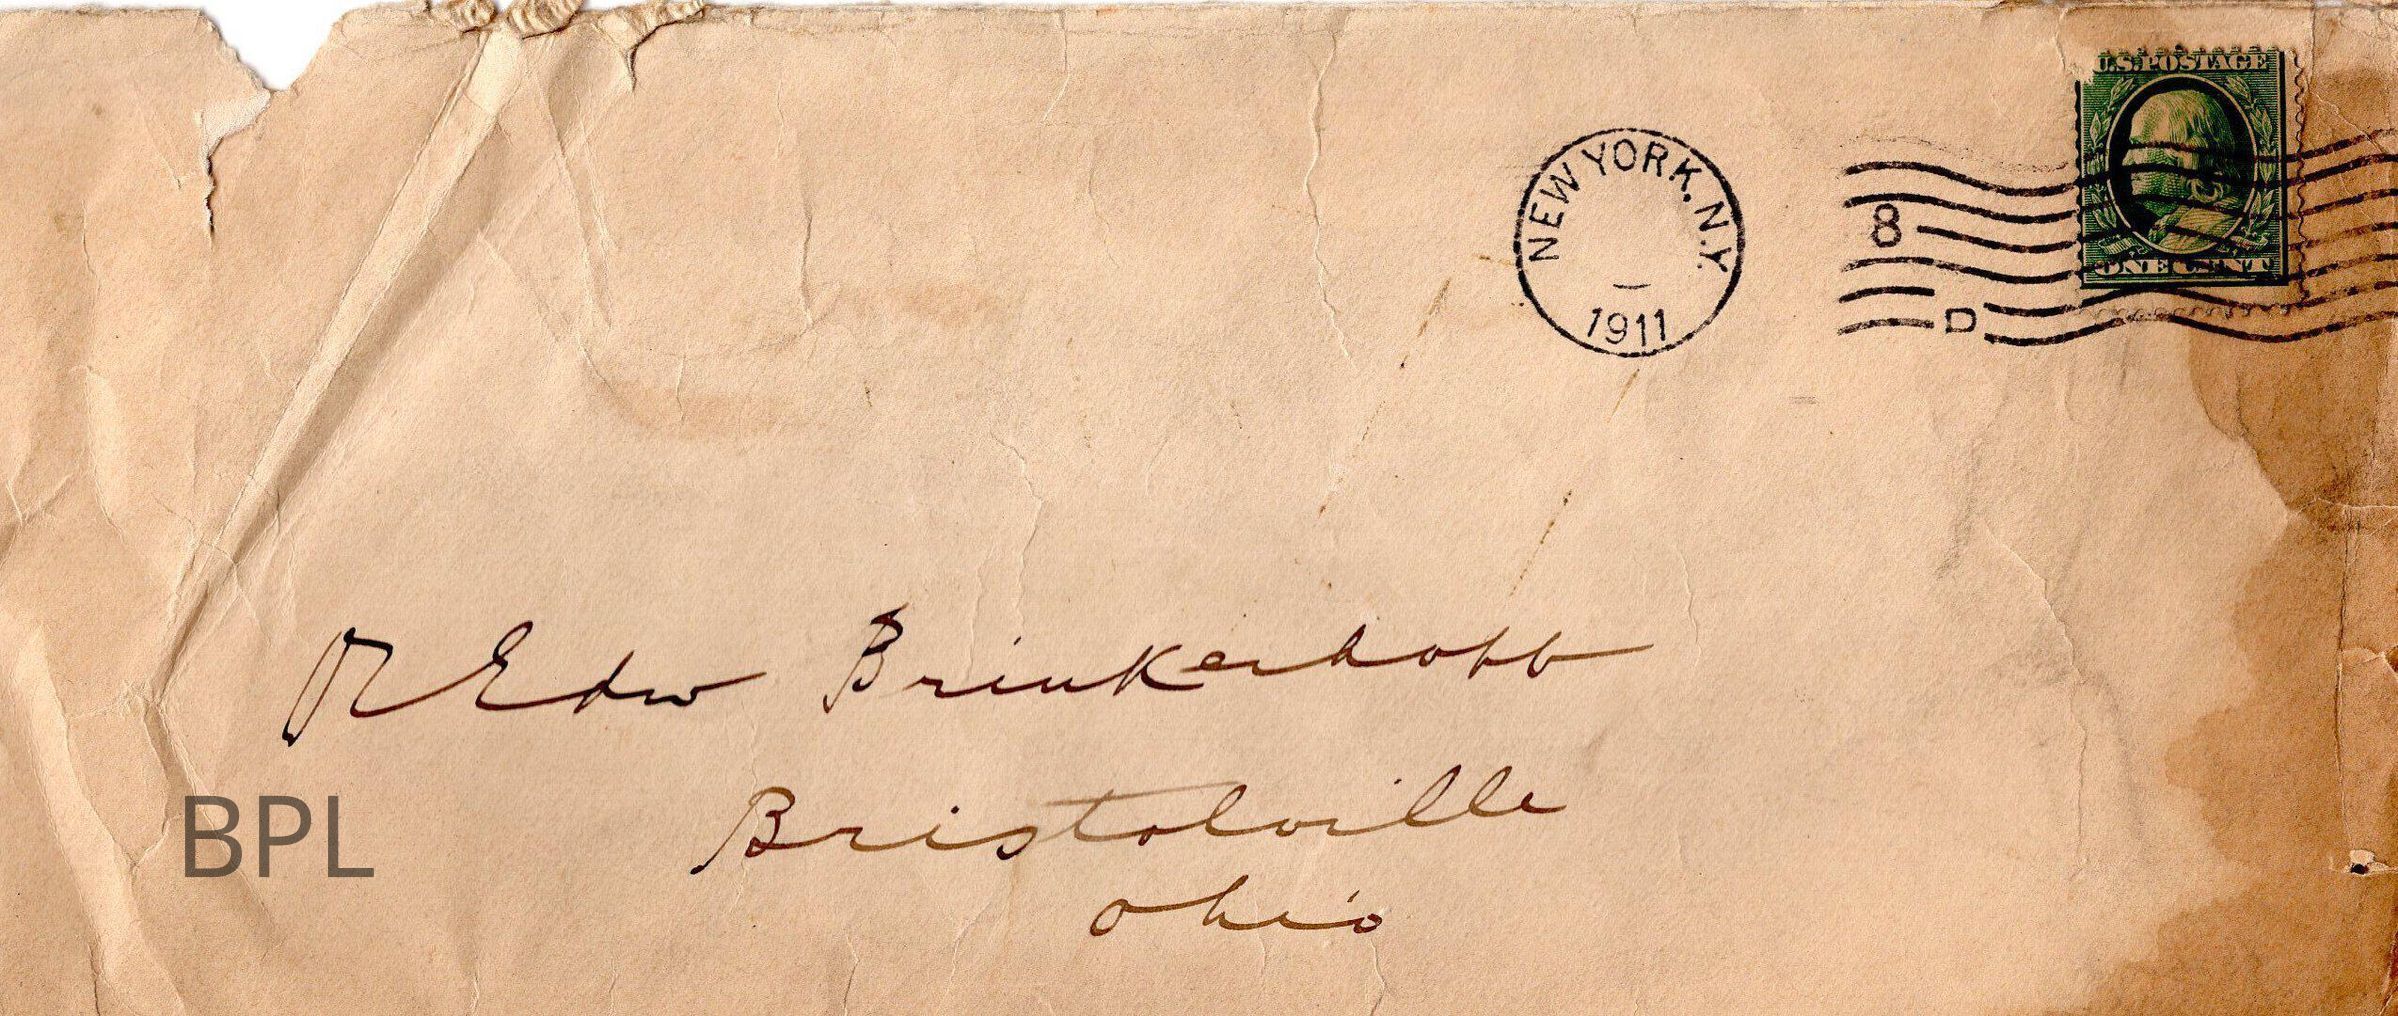 U.S. POSTAGE
NEW YORK, N.Y.
1911
8
D
ONE CENT
R Edw Brinkerhoff
Bristolville
Ohio
BPL